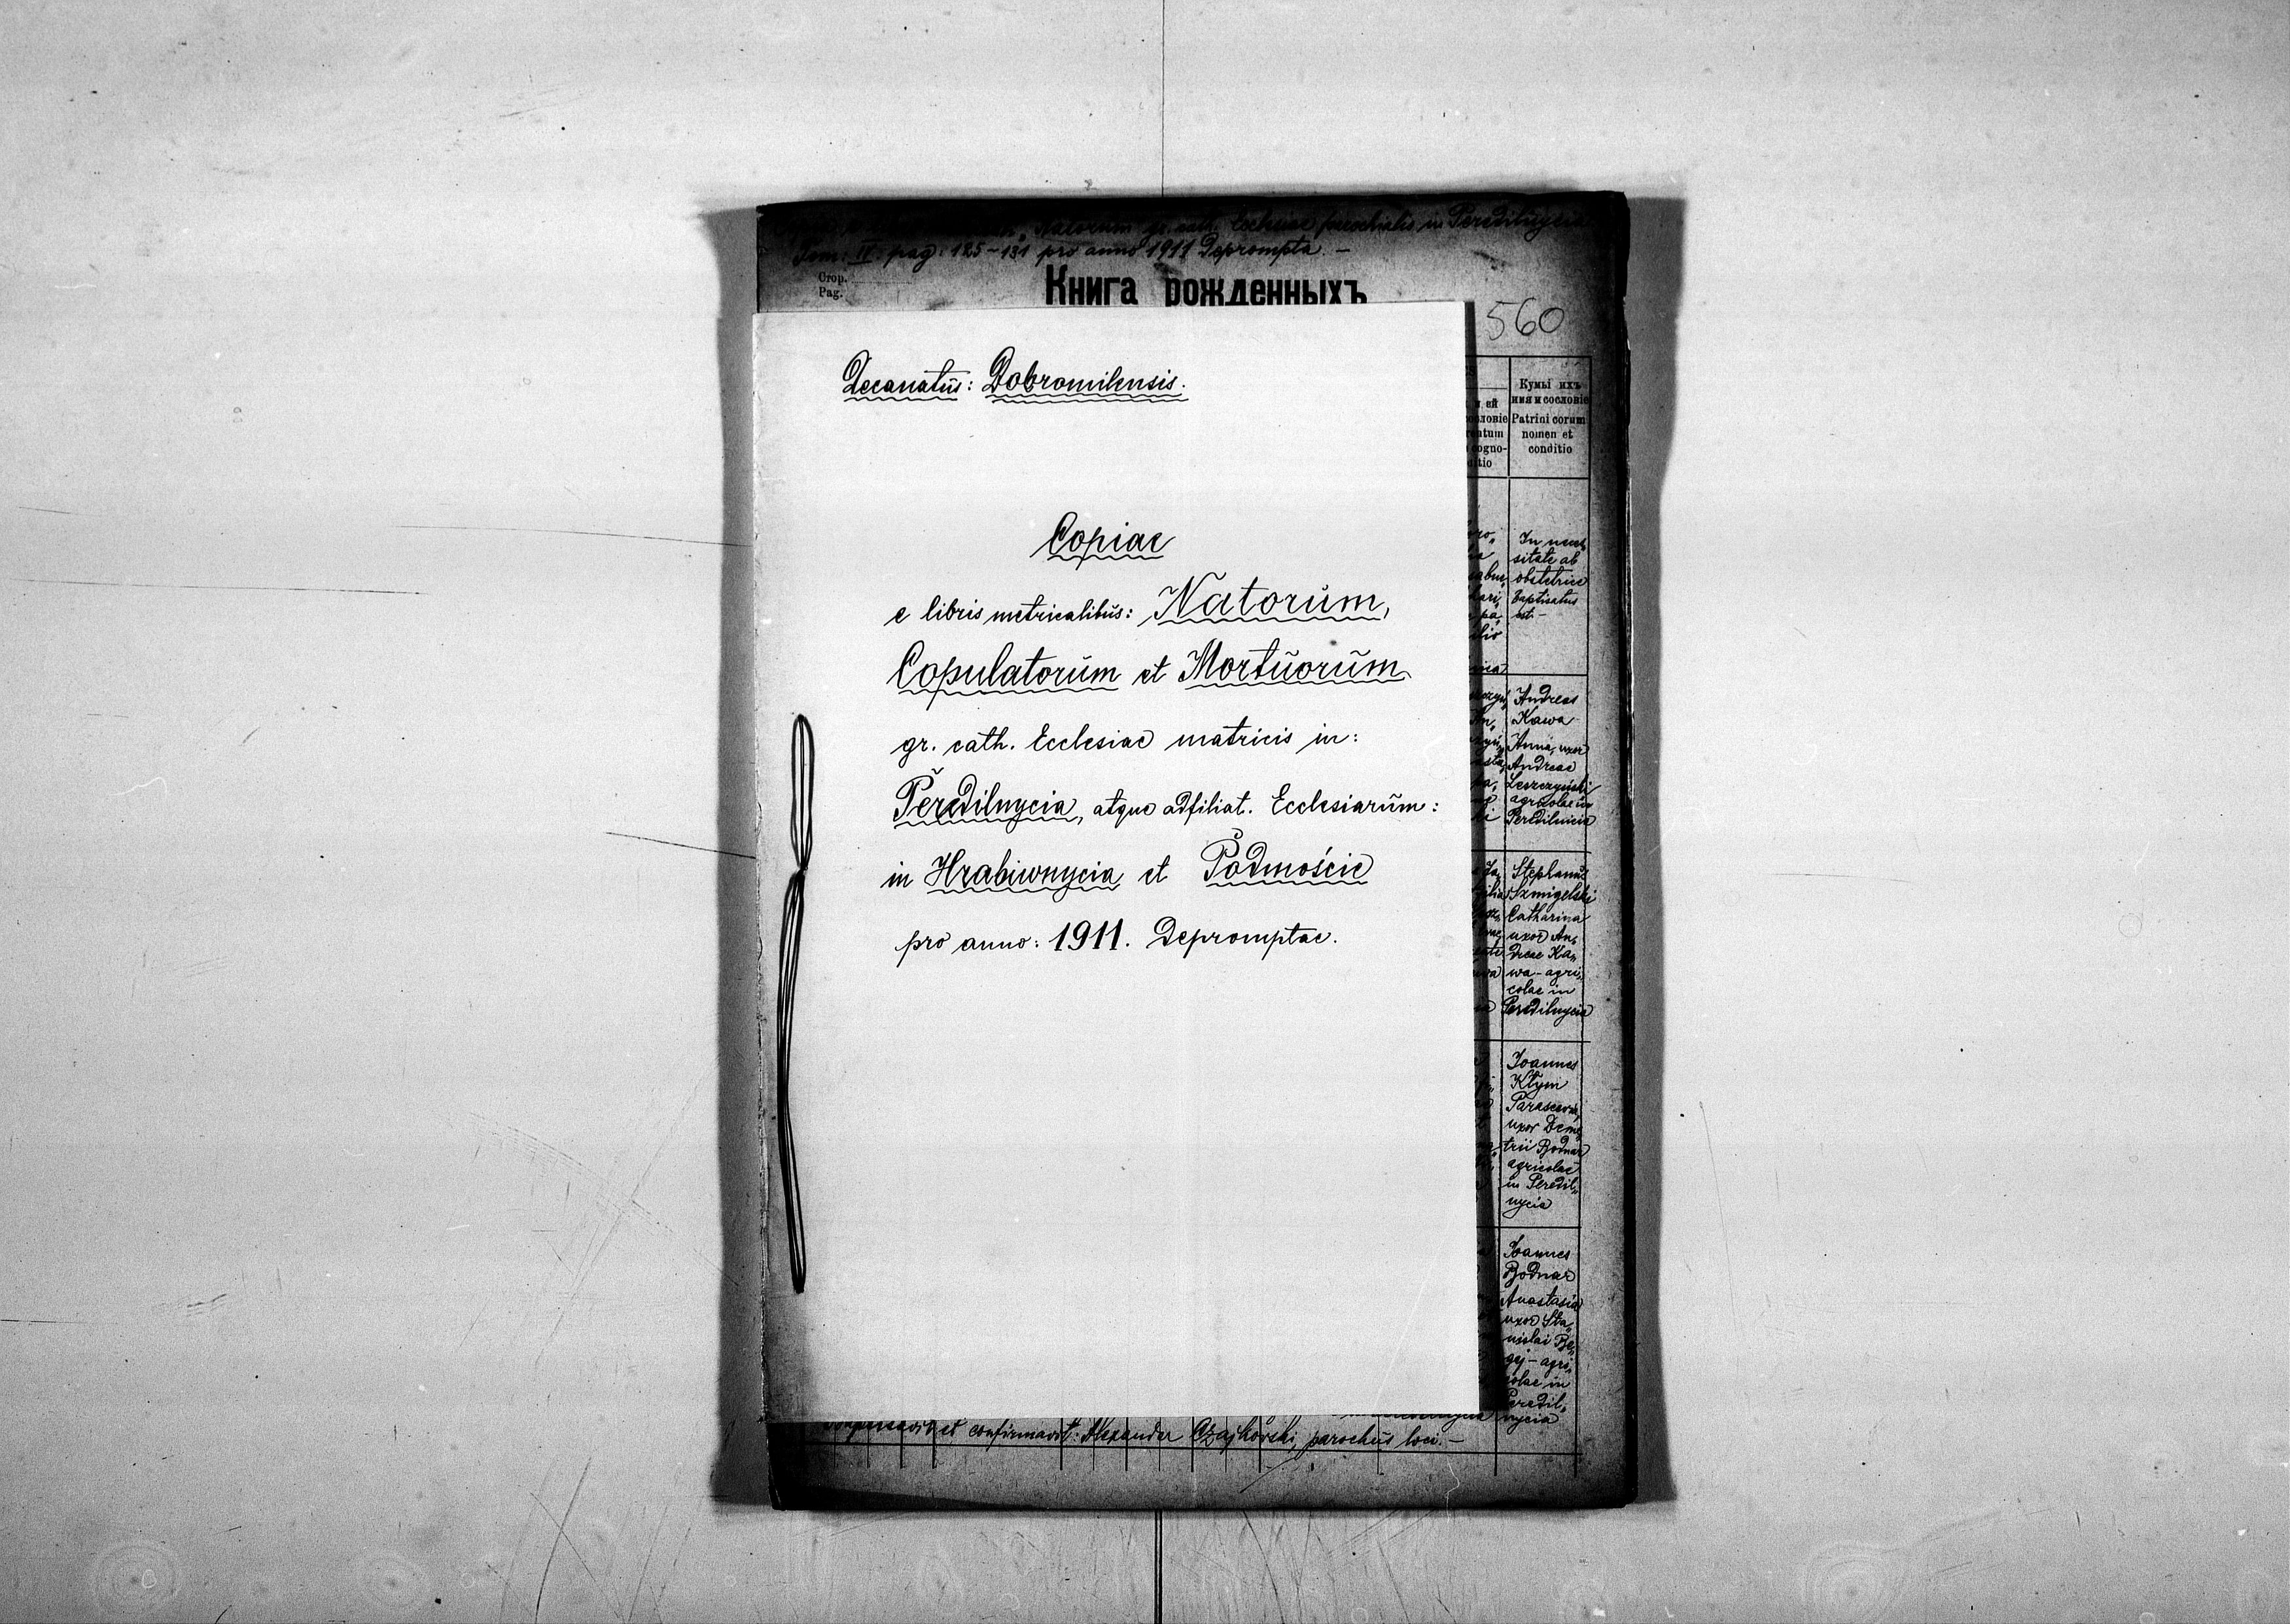 Natorum gr. cath. Ecclesiae parochialis in Peredilnycia
Tom: IV. pag: 125-131 pro anno 1911 Deprompta. -
Стор.
Pag.
Книга рожденныхъ
560
Decanatŭs: Dobromilensis.
Copiae
e libris metricalibŭs: Natorŭm,
Copulatorŭm et Mortŭorŭm
gr. cath. Ecclesiae matricis in:
Peredilnycia, atque adfiliat. Ecclesiarŭm:
in Hrabiwnycia et Podmoście
pro anno: 1911. Depromptae.
Кумы ихъ
имя и сословіе
Patrini eorum
nomen et
conditio
In neces„
sitate ab
obstetrice
baptisatus
est -
Andreas
Kawa
Anna, uxor
Andreae
Leszczyński
agricolae in
Peredilnicia
Stephanŭs
Szmigelski
Catharina
uxor An„
dreae Ka„
wa - agri„
colae in
Peredilnycia
Joannes
Kłym
Parascevia,
uxor Deme„
trii Bodnar
agricolae
in Peredil„
nycia
Joannes
Bodnar
Anastasia
uxor Sta„
nislai Be„
gej - agri„
colae in
Peredil„
nycia
et confirmavit: Alexander Czajkovski, parochŭs loci. -